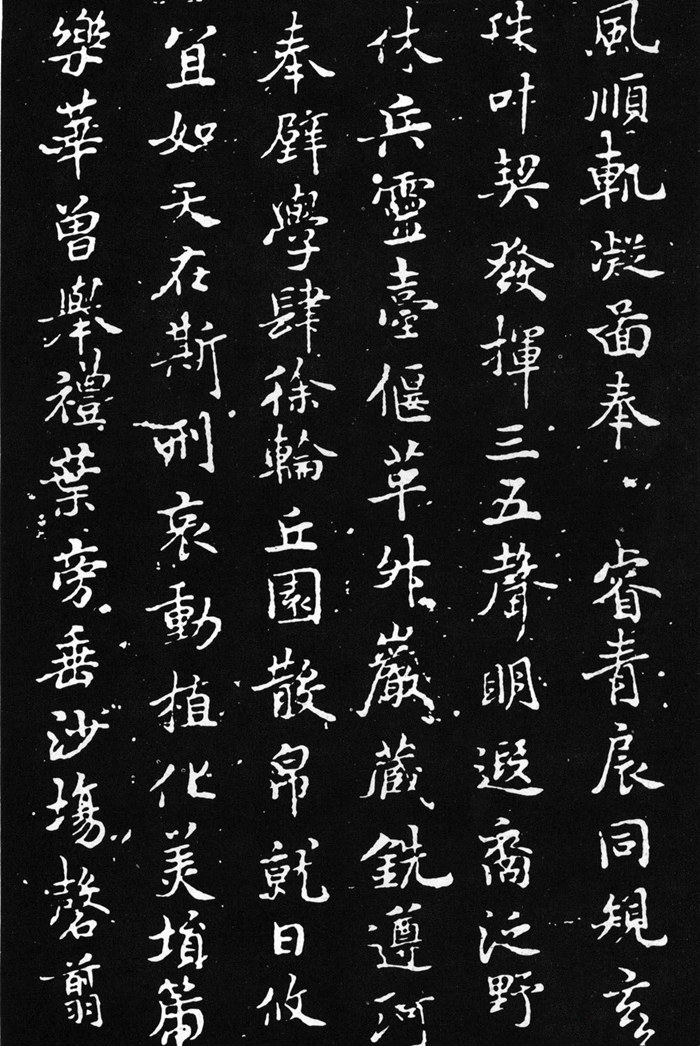 風順軌凝啚奉 睿青扆同規玄
珠叶契發揮三五聲明遐裔泛野
休兵靈臺偃革外巖藏銑遵河
奉璧學肆徐輪丘園散帛就日攸
宜如天在斯刑哀動植化美塤箎
樂華曾舉禮葉旁垂沙場磬翦